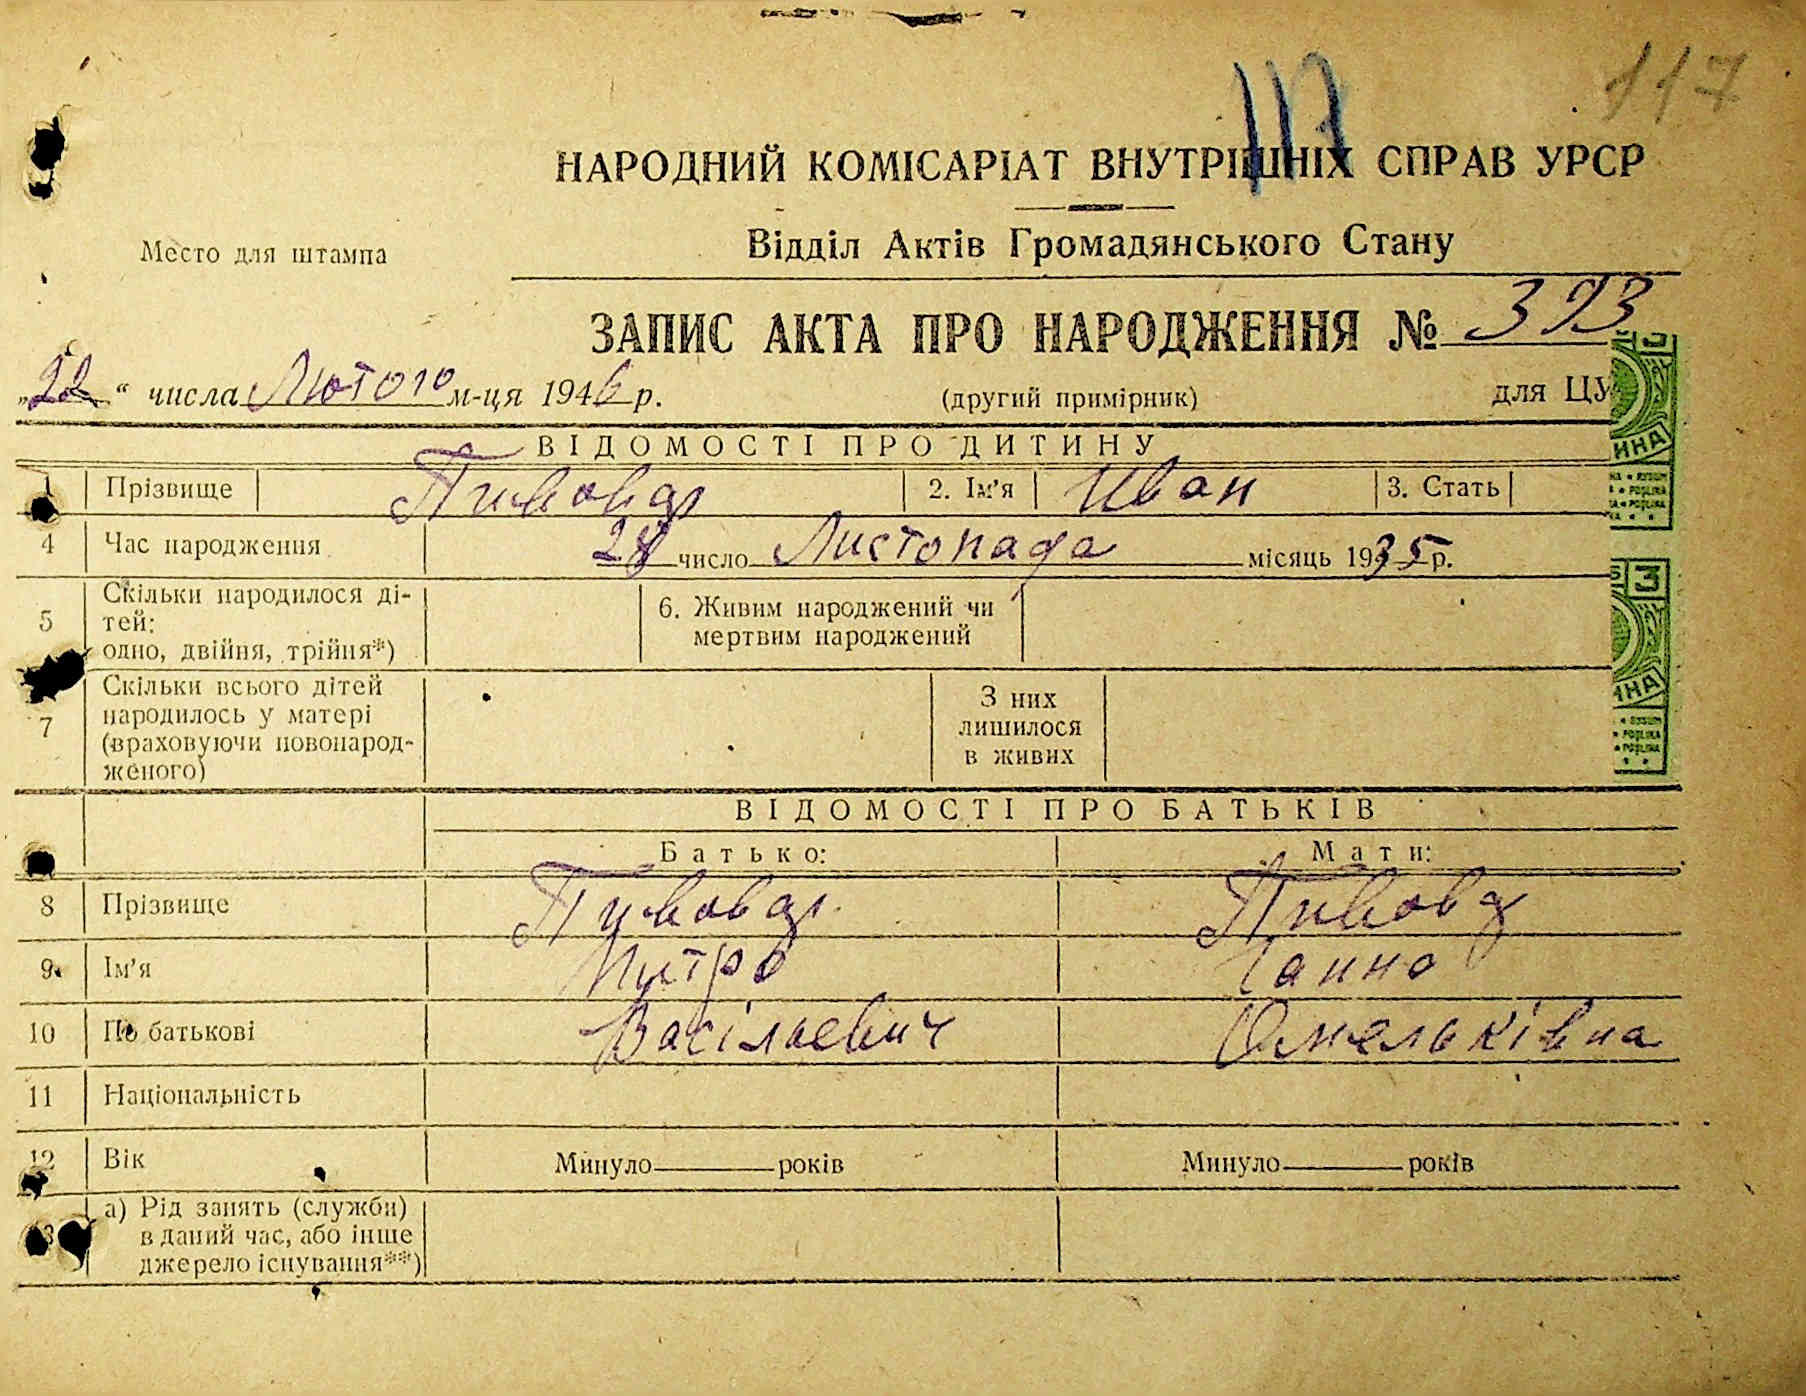 117
117
НАРОДНИЙ КОМІСАРІАТ ВНУТРІШНІХ СПРАВ УРСР
Место для штампа
Відділ Актів Громадянського Стану
ЗАПИС АКТА ПРО НАРОДЖЕННЯ № 393
„22“ числа Лютого м-ця 1946 р.
(другий примірник)
для ЦУ
ВІДОМОСТІ ПРО ДИТИНУ
1 Прізвище Пивовар 2. Ім’я Иван 3. Стать
4 Час народження 28 число Листопада місяць 1935 р.
5 Скільки народилося ді-
тей:
одно, двійня, трійня*)
6. Живим народжений чи
мертвим народжений
7 Скільки всього дітей
народилось у матері
(враховуючи новонарод-
женого)
З них
лишилося
в живих
ВІДОМОСТІ ПРО БАТЬКІВ
Батько: Мати:
8 Прізвище Пивовар Пивова
9 Ім’я Питро Ганна
10 По батькові Васільевич Омельківна
11 Національність
12 Вік Минуло років Минуло років
13 а) Рід занять (служби)
в даний час, або інше
джерело існування**)
3
ИНА